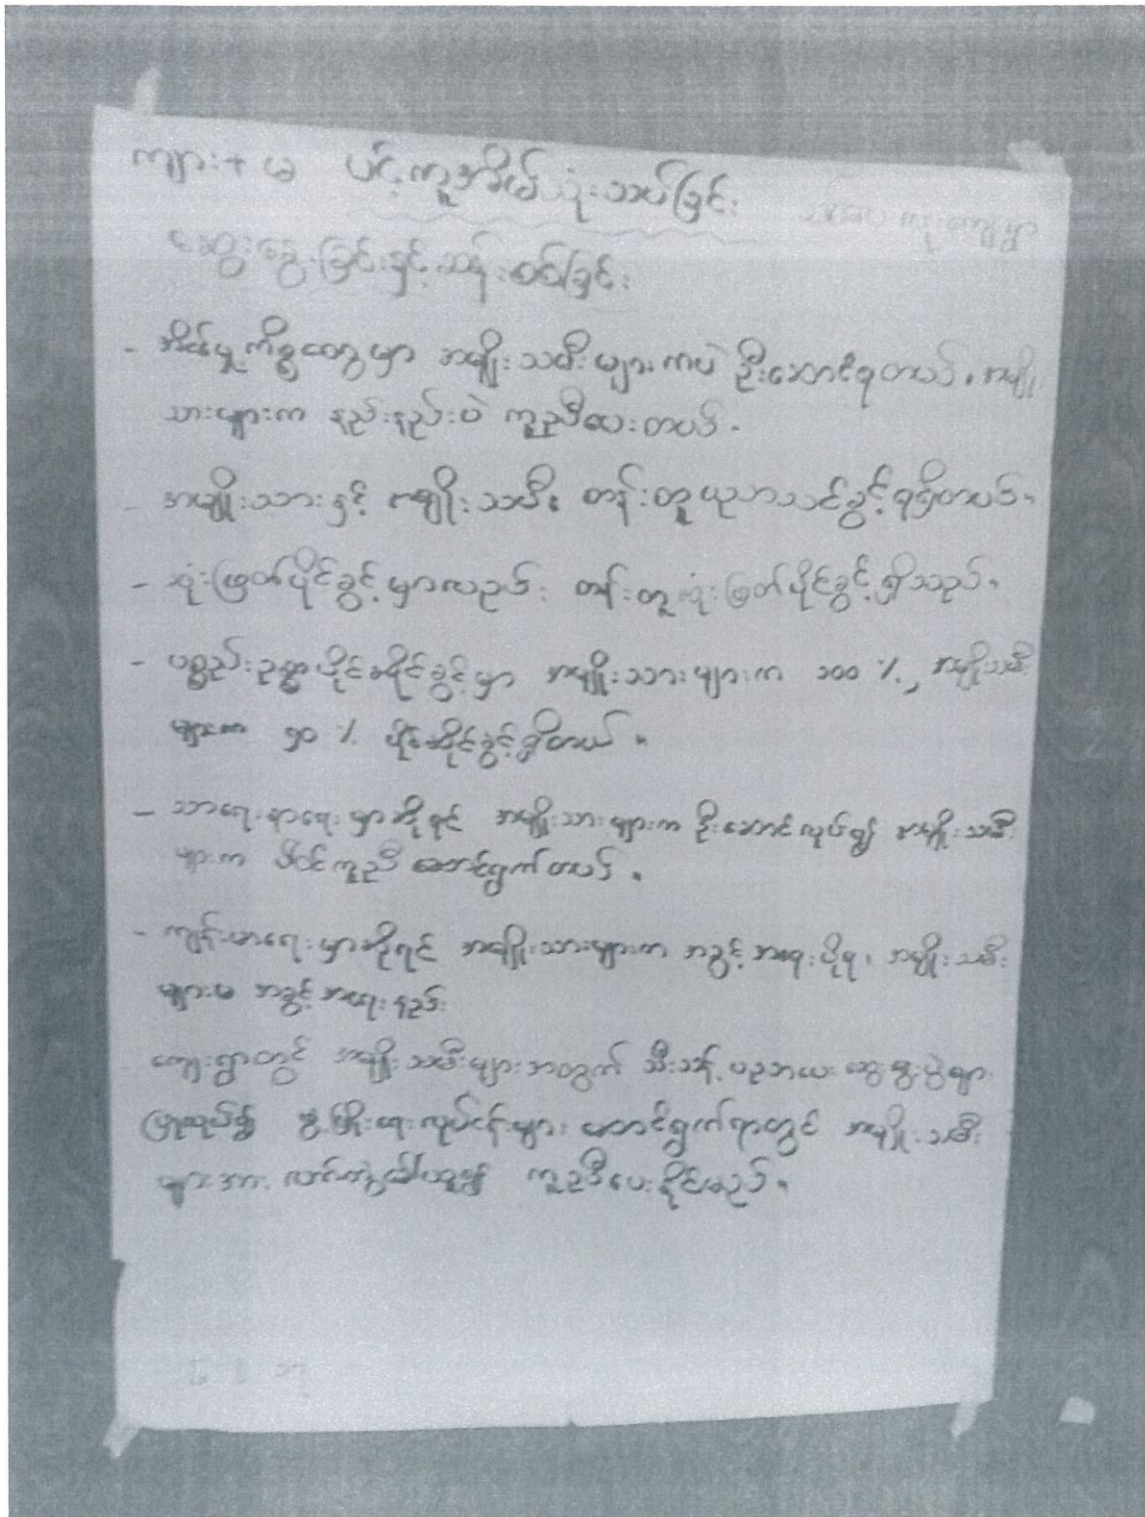 ကျား + မ ပင့်ကူအိမ်သုံးသပ်ခြင်း
ဆွေးနွေးခြင်းနှင့်ဆန်းစစ်ခြင်း
- အိမ်မှုကိစ္စတွေမှာ အမျိုးသမီးများကပဲ ဦးဆောင်ရတယ်။ အမျိုး
သားများက နည်းနည်းပဲ ကူညီပေးတယ်။
- အမျိုးသားနှင့် အမျိုးသမီး တန်းတူပညာသင်ခွင့်ရရှိတယ်။
- ဆုံးဖြတ်ပိုင်ခွင့်မှာလည်း တန်းတူဆုံးဖြတ်ပိုင်ခွင့်ရှိသည်။
- ပစ္စည်းဥစ္စာပိုင်ဆိုင်ခွင့်မှာ အမျိုးသားများက ၁၀၀ %, အမျိုးသမီး
များက ၅၀ % ပိုင်ဆိုင်ခွင့်ရှိတယ်။
- သာရေးနာရေးမှာဆိုရင် အမျိုးသားများက ဦးဆောင်လုပ်၍ အမျိုးသမီး
များက ဝိုင်းကူညီ ဆောင်ရွက်တယ်။
- ကျန်းမာရေးမှာဆိုရင် အမျိုးသားများက အခွင့်အရေးပိုရ၊ အမျိုးသမီး
များမှ အခွင့်အရေးနည်း
ကျေးရွာတွင် အမျိုးသမီးများအတွက် သီးသန့် ပညာပေး ဆွေးနွေးပွဲများ
ပြုလုပ်၍ ဖွံ့ဖြိုးရေးလုပ်ငန်းများ ဆောင်ရွက်ရာတွင် အမျိုးသမီး
များအား လက်တွဲခေါ်ယူ၍ ကူညီပေးနိုင်မည်။